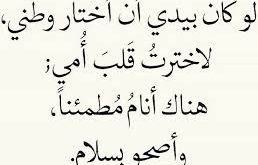 لو كان بيدي أن أختار وطني،
لاخترتُ قلبَ أُمي;
هناك أنامُ مُطمئناً،
وأصحو بسلام.